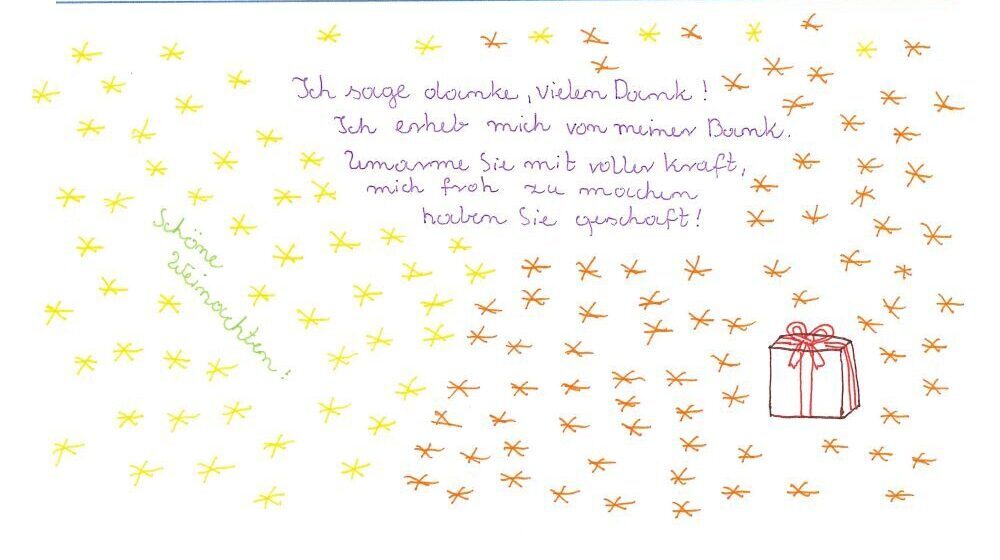 Ich sage danke, vielen Dank!
Ich erheb mich von meiner Bank.
Umarme Sie mit voller Kraft,
mich froh zu machen
haben Sie geschaft!
Schöne
Weinachten!